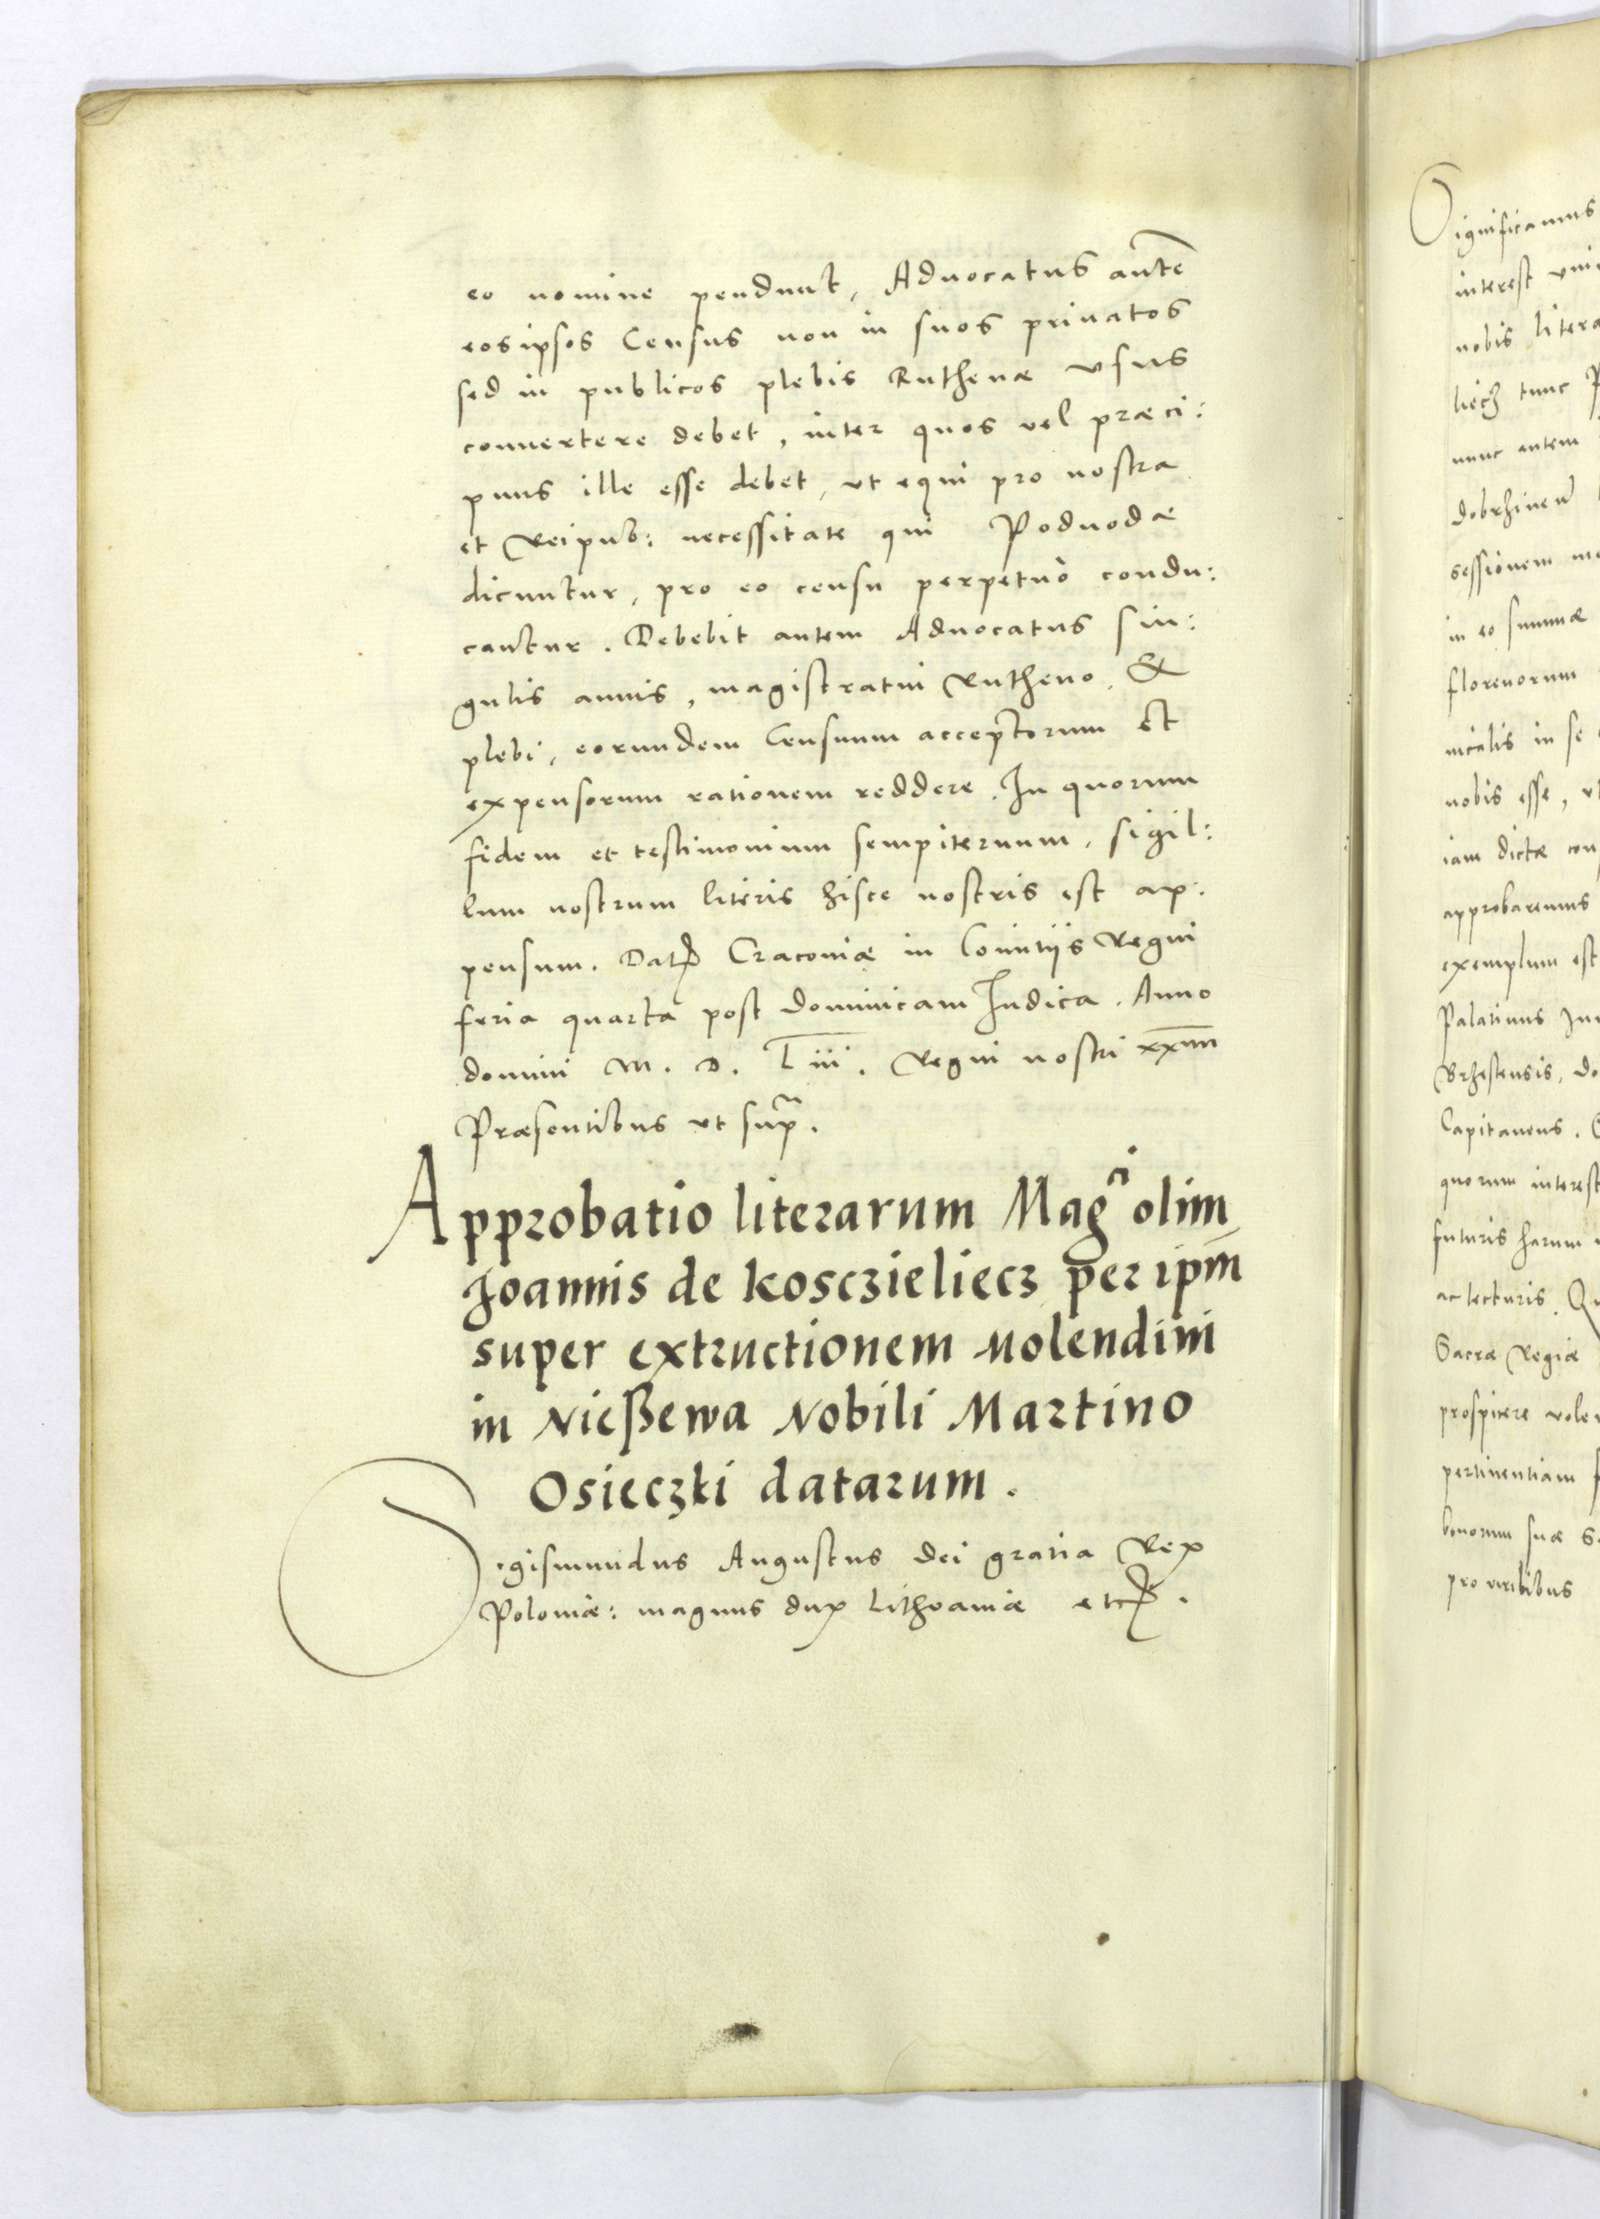 eo nomine pendunt, Aduocatus autē
eos ipsos Census non in suos priuatos
sed in publicos plebis Ruthenæ vsus
conuertere debet, inter quos vel præci:
puus ille esse debet, ut equi pro nostra
et Reipub: necessitate qui Poduodæ
dicuntur, pro eo censu perpetuò condu:
cantur. Debebit autem Aduocatus sin:
gulis annis, magistratui Rutheno, &
plebi, eorundem Censuum acceptorum et
expensorum rationem reddere. In quorum
fidem et testimonium sempiternum, sigil:
lum nostrum literis hisce nostris est ap:
pensum. Datȝ Cracouiæ in Comitijs Regni
feria quarta post dominicam Iudica. Anno
domini M. D. Liii. Regni nostri xxiiii
Præsentibus ut supȓ.
Approbatio literarum Magci olim
Joannis de Kosczieliecz per ipm̄
super extructionem Molendini
in Nießewa Nobili Martino
Osieczki datarum.
Sigismundus Augustus dei gratia Rex
Poloniæ: magnus dux Lithvaniæ etcȝ.
Significamus
interest
nobis litera
liecz tunc
nunc autem
dobrzinen̄
sessionem
in eo summæ
florenorum
nicalis in se
nobis esse,
iam dictæ con
approbaremus
exemplum est
Palatinus
Brzestensis,
Capitaneus.
quorum interest
futuris harum
ac lecturis.
Sacræ Regiæ
prospicere
pertinentiam
bonorum suæ
pro viribibus